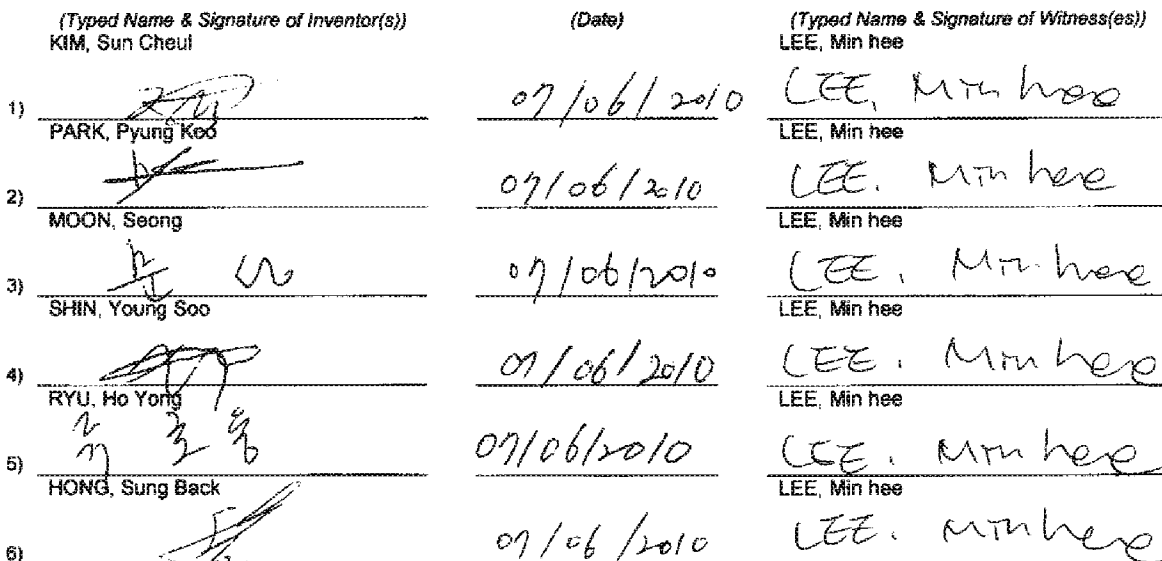 (Typed Name & Signature of Inventor(s)) (Date) (Typed Name & Signature of Witness(es))
KIM, Sun Cheul LEE, Min hee
1) 07/06/2010 LEE, Min hee
PARK, Pyung Koo LEE, Min hee
2) 07/06/2010 LEE. Min hee
MOON, Seong LEE, Min hee
3) 07/06/2010 LEE. Min hee
SHIN, Young Soo LEE, Min hee
4) 07/06/2010 LEE. Min hee
RYU, Ho Yong LEE, Min hee
5) 류 호 용 07/06/2010 LEE. Min hee
HONG, Sung Back LEE, Min hee
6) 07/06/2010 LEE. Min hee